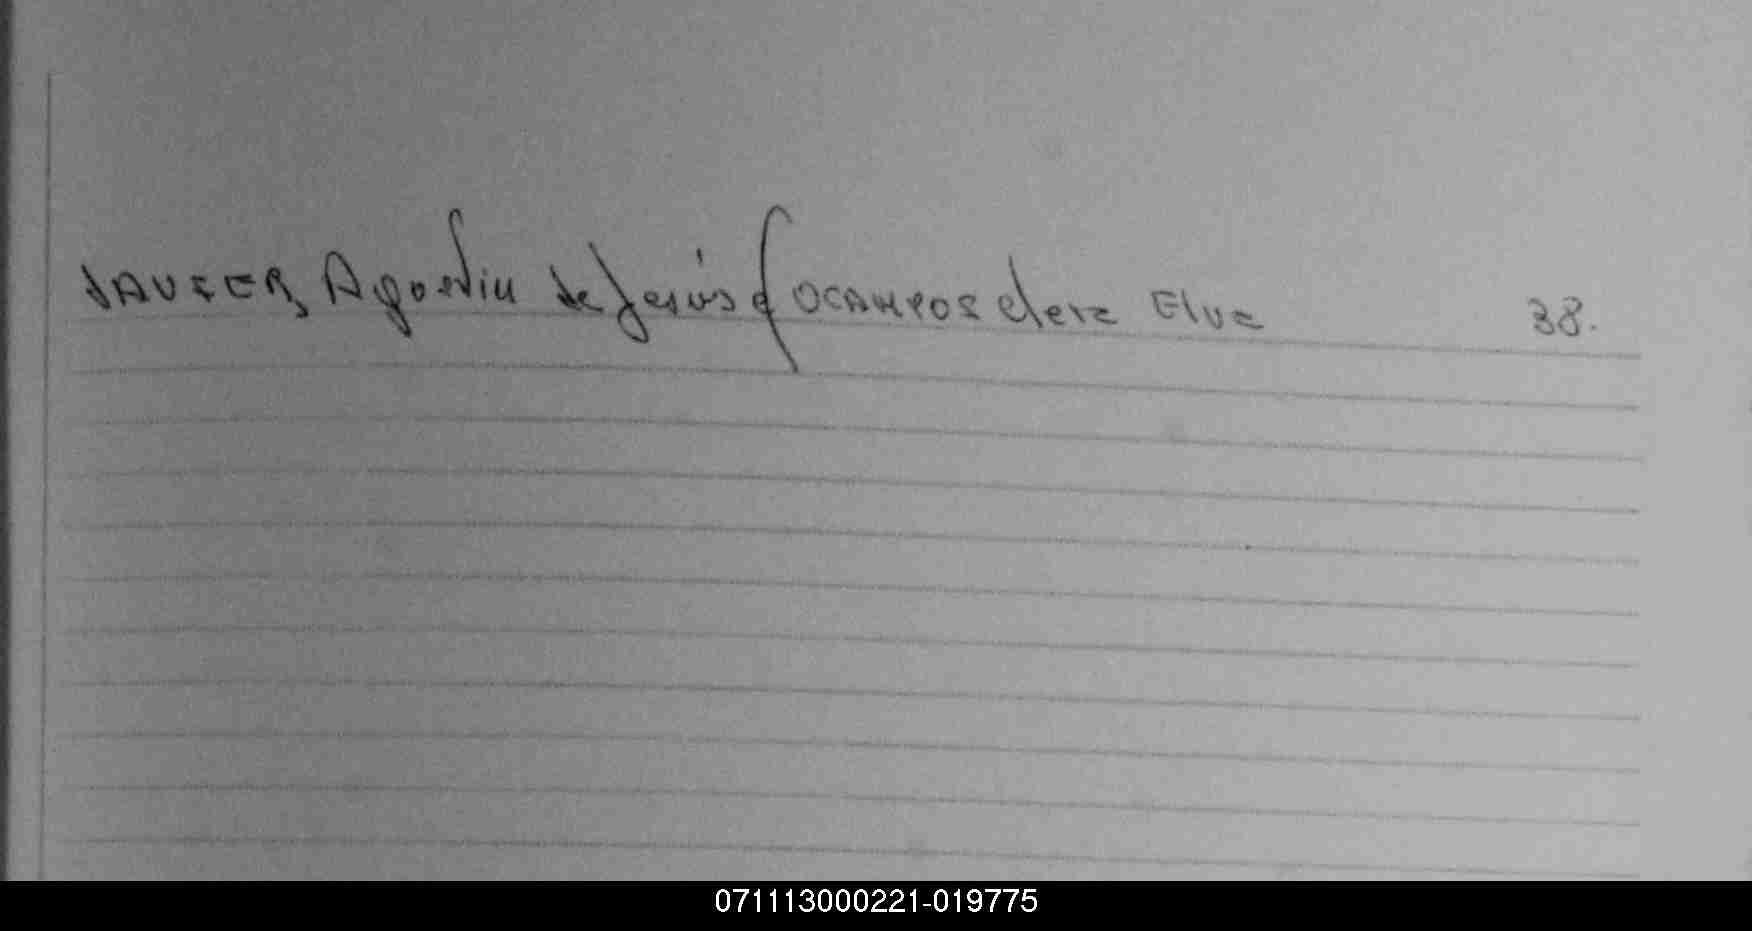 JAVIER, Agostin de Jesús c/ OCAMPOS Clara Elva 38.
071113000221-019775